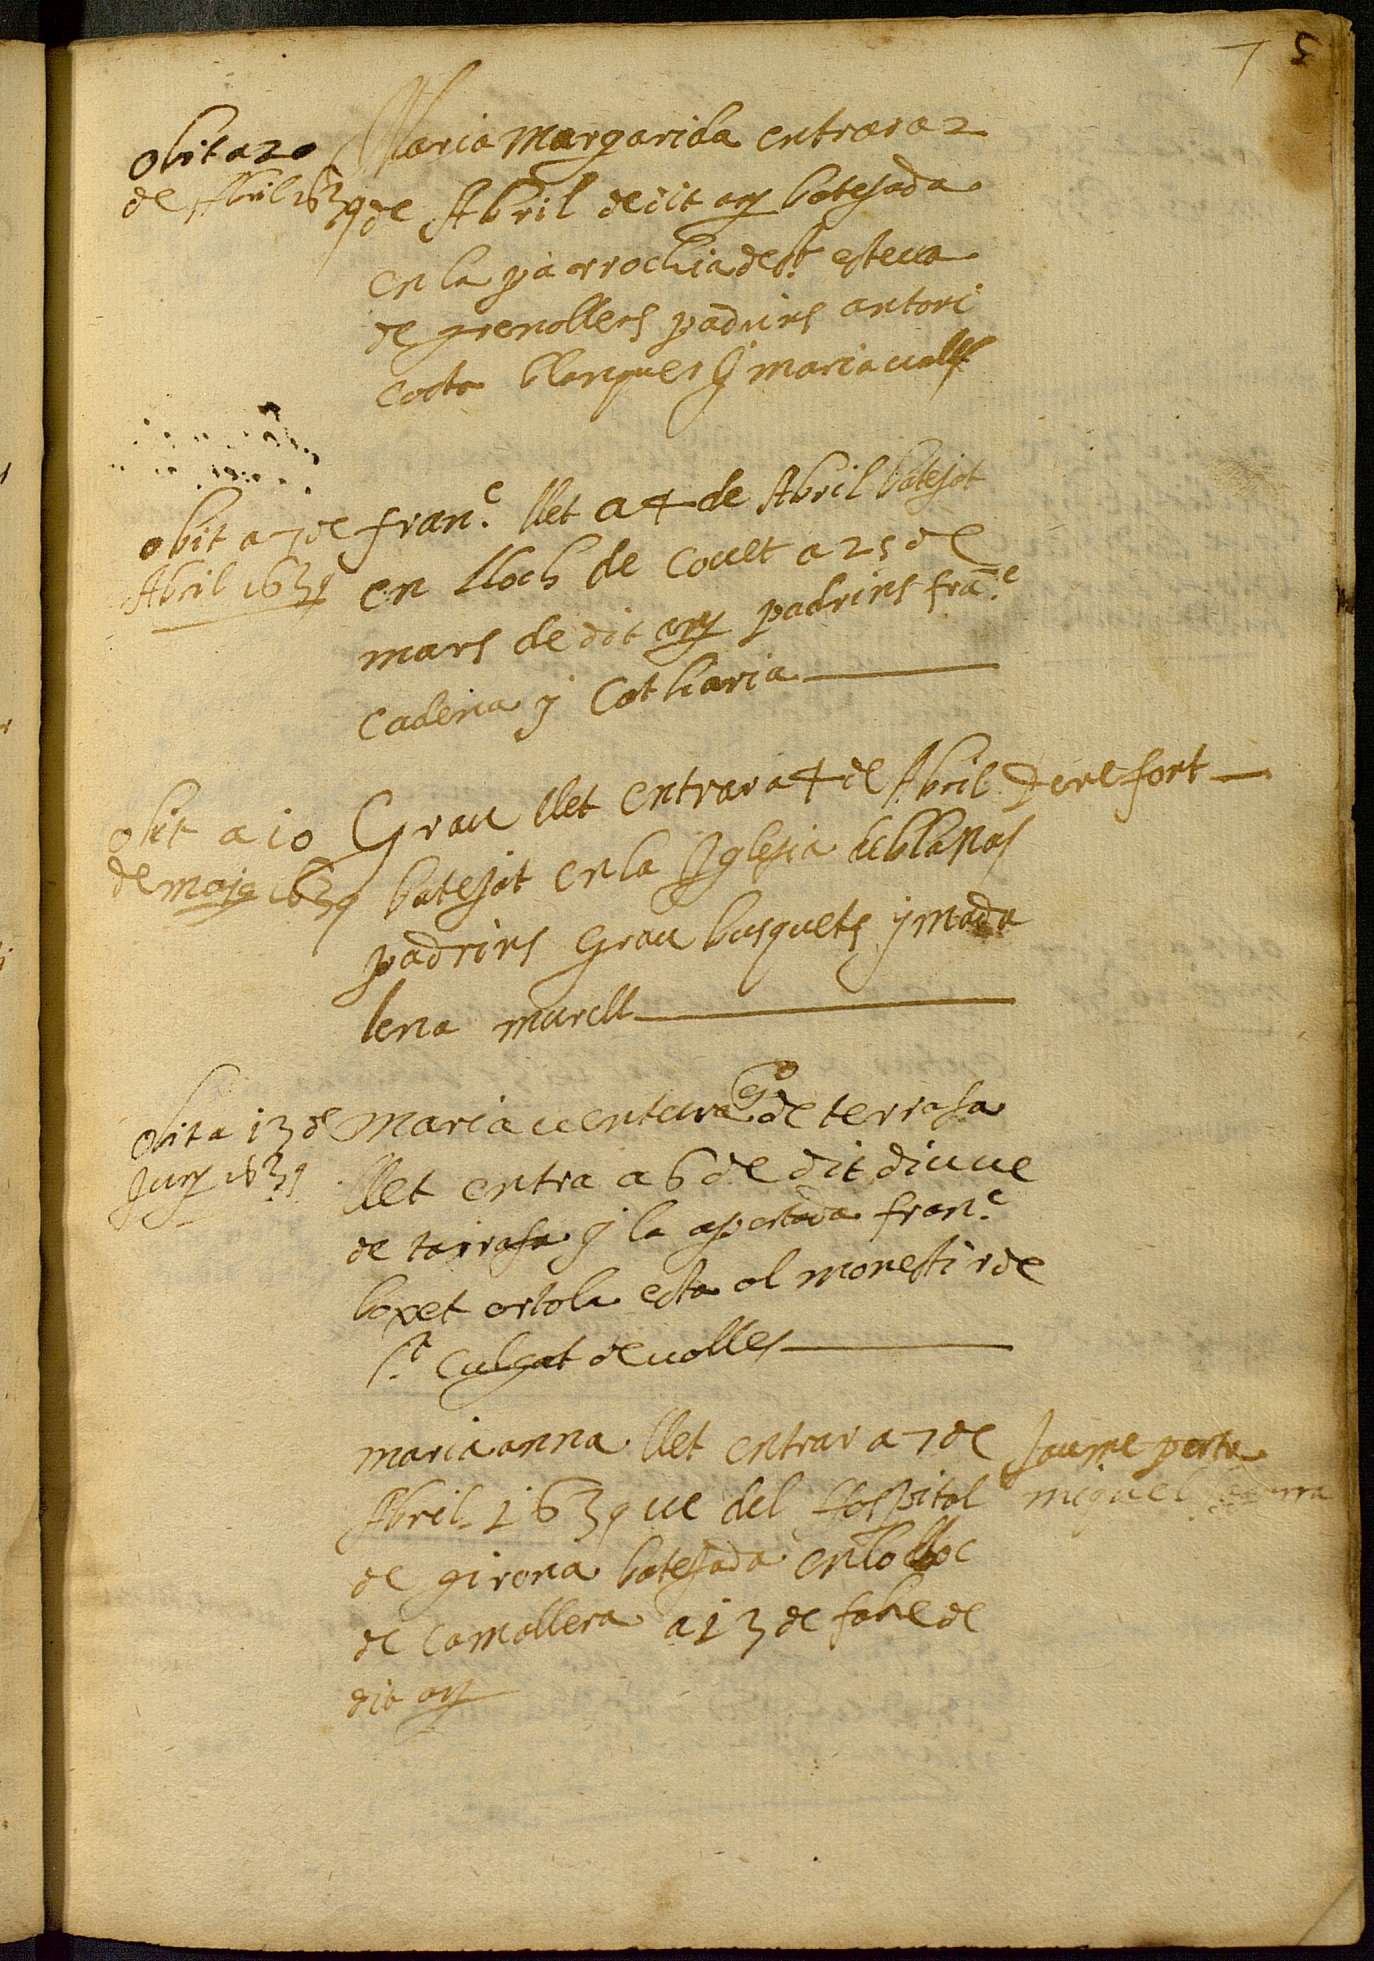 7 5
obit a 20
de Abril 1639
Maria Margarida entrara a 2
de Abril de dit añ batejada
en la parrochia de St esteva
de grenollers padrins antoni
costa blanquer y maria valls
obit a 7 de
Abril 1639
franc. llet a 4 de Abril batejat
en lloch de covet a 25 de
mars de dit añ padrins franc.
cadena y Catharia
obit a 10
de maig 1639
Grau llet entrara a 4 de Abril Pere font
batejat en la Iglesia de blanas
padrins Grau busquets y mada
lena marell
obit a 13 de
Juny 1639
Maria ventura de terrasa
llet entra a 6 de dit diu ve
de tarrasa y la aportada franc.
boxet ortola esta al monestir de
St. Culgat de valles
maria anna llet entrar a 7 de
Jaume porta
Abril 1639 ve del Hospital
miquel
de girona batejada en lo lloc
de camallera a 13 de fabre de
dit añ